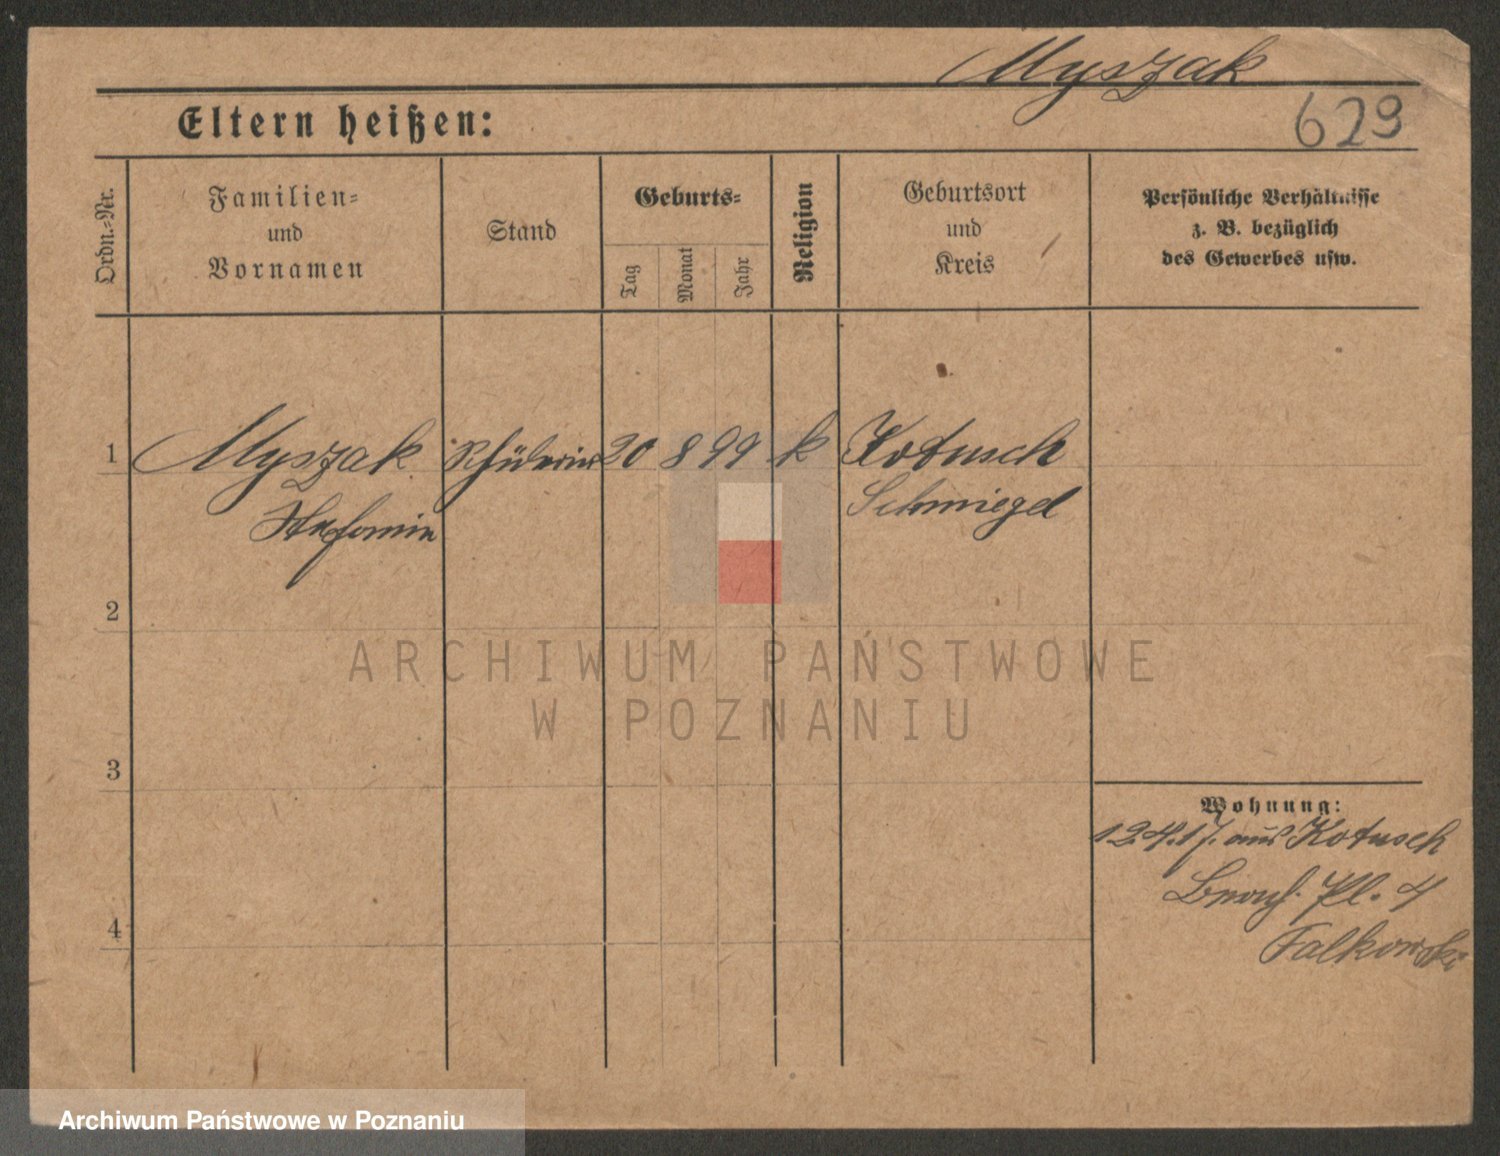 Myszak
629
Eltern heißen:
Ordn.-Nr.
Familien-
und
Vornamen
Stand
Geburts-
Tag
Monat
Jahr
Religion
Geburtsort
und
Kreis
Persönliche Verhältnisse
z. B. bezüglich
des Gewerbes usw.
1 Myszak Schülerin 20 8 99 k Kotusch
Stefanie Schmiegel
2
3
4
ARCHIWUM PAŃSTWOWE
W POZNANIU
Wohnung:
12.4.17. aus Kotusch
Pl. 4
Falkowski
Archiwum Państwowe w Poznaniu